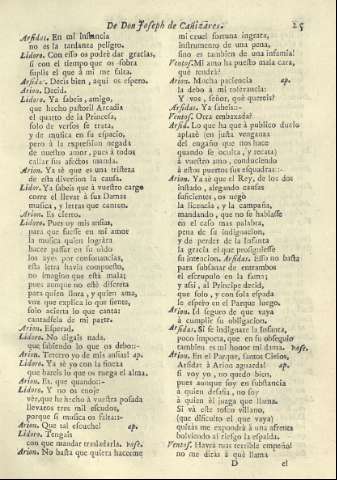 De Don Joseph de Cañizares. 25
Arsidas. En mi Instancia
no es la tardanza peligro.
Lidoro. Con esso os podré dar gracias,
si con el tiempo que os sobra
suplis el que à mi me falta.
Arsidas. Decis bien, aqui os espero.
Arion. Decid.
Lidoro. Ya sabeis, amigo,
que hecho pastoril Arcadia
el quarto de la Princesa,
solo de versos se trata,
y de musica en su espacio,
pero à la expression negada
de nuestro amor, pues à todos
callar sus afectos manda.
Arion. Ya sè que es una tristeza
de esta diversion la causa.
Lidor. Ya sabeis que à vuestro cargo
corre el llevar à sus Damas
musica, y letras que canten.
Arion. Es cierto.
Lidoro. Pues oy mis ansias,
para que fuesse en mi amor
la musica quien lográra
hacer passar en su oido
los ayes por consonancias,
esta letra havia compuesto,
no imagino que està mala;
pues aunque no estè discreta
para quien llora, y quien ama,
voz que explica lo que siente,
solo acierta lo que canta:
cantadsela de mi parte.
Arion. Esperad.
Lidoro. No digais nada,
que sabiendo lo que os debo::-
Arion. Tercero yo de mis ansias! ap.
Lidoro. Ya sè yo con la fineza
que hareis lo que os ruega el alma.
Arion. Ea, que quando::-
Lidoro. Y no os enoje
ver, que ha hecho à vuestra posada
llevaros tres mil escudos,
porque si musica os falta::-
Arion. Que tal escucho! ap.
Lidoro. Tengais
con que mandar trasladarla. Vase.
Arion. No basta que quiera hacerme
mi cruel fortuna ingrata,
instrumento de una pena,
sino es tambien de una infamia!
Ventos. Mi amo ha puesto mala cara,
què tendrà?
Arion. Mucha paciencia ap.
la debo à mi tolerancia:
Y vos, señor, què quereis?
Arsidas. Ya sabeis::-
Ventos. Otra embaxada?
Arsid. Lo que ha que à publico duelo
aplazè (en justa venganza
del engaño que nos hace
quando se oculta, y recata)
à vuestro amo, conduciendo
à estos puertos sus esquadras::-
Arion. Ya sè que el Rey, de los dos
instado, alegando causas
suficientes, os negò
la licencia, y la campaña,
mandando, que no se hablasse
en el caso mas palabra,
pena de su indignacion,
y de perder de la Infanta
la gracia el que prosiguiesse
su intencion. Arsidas. Esso no basta
para subsanar de entrambos
el escrupulo en la fama;
y assi, al Principe decid,
que solo, y con sola espada
le espero en el Parque luego.
Arion. Id seguro de que vaya
à cumplir su obligacion.
Arsidas. Si se indignare la Infanta,
poco importa, que en su obsequio
tambien es mi honor mi dama. Vase.
Arion. En el Parque, santos Cielos,
Arsidas à Arion aguarda! ap.
si voy yo, no quedo bien,
pues aunque soy en substancia
à quien desafia, no soy
à quien èl juzga que llama.
Si và este tosco villano,
(que dificulto el que vaya)
quizàs me expondrà à una afrenta
bolviendo al riesgo la espalda.
Ventos. Havrà mas terrible empeño!
no me dirás à què llama
D el